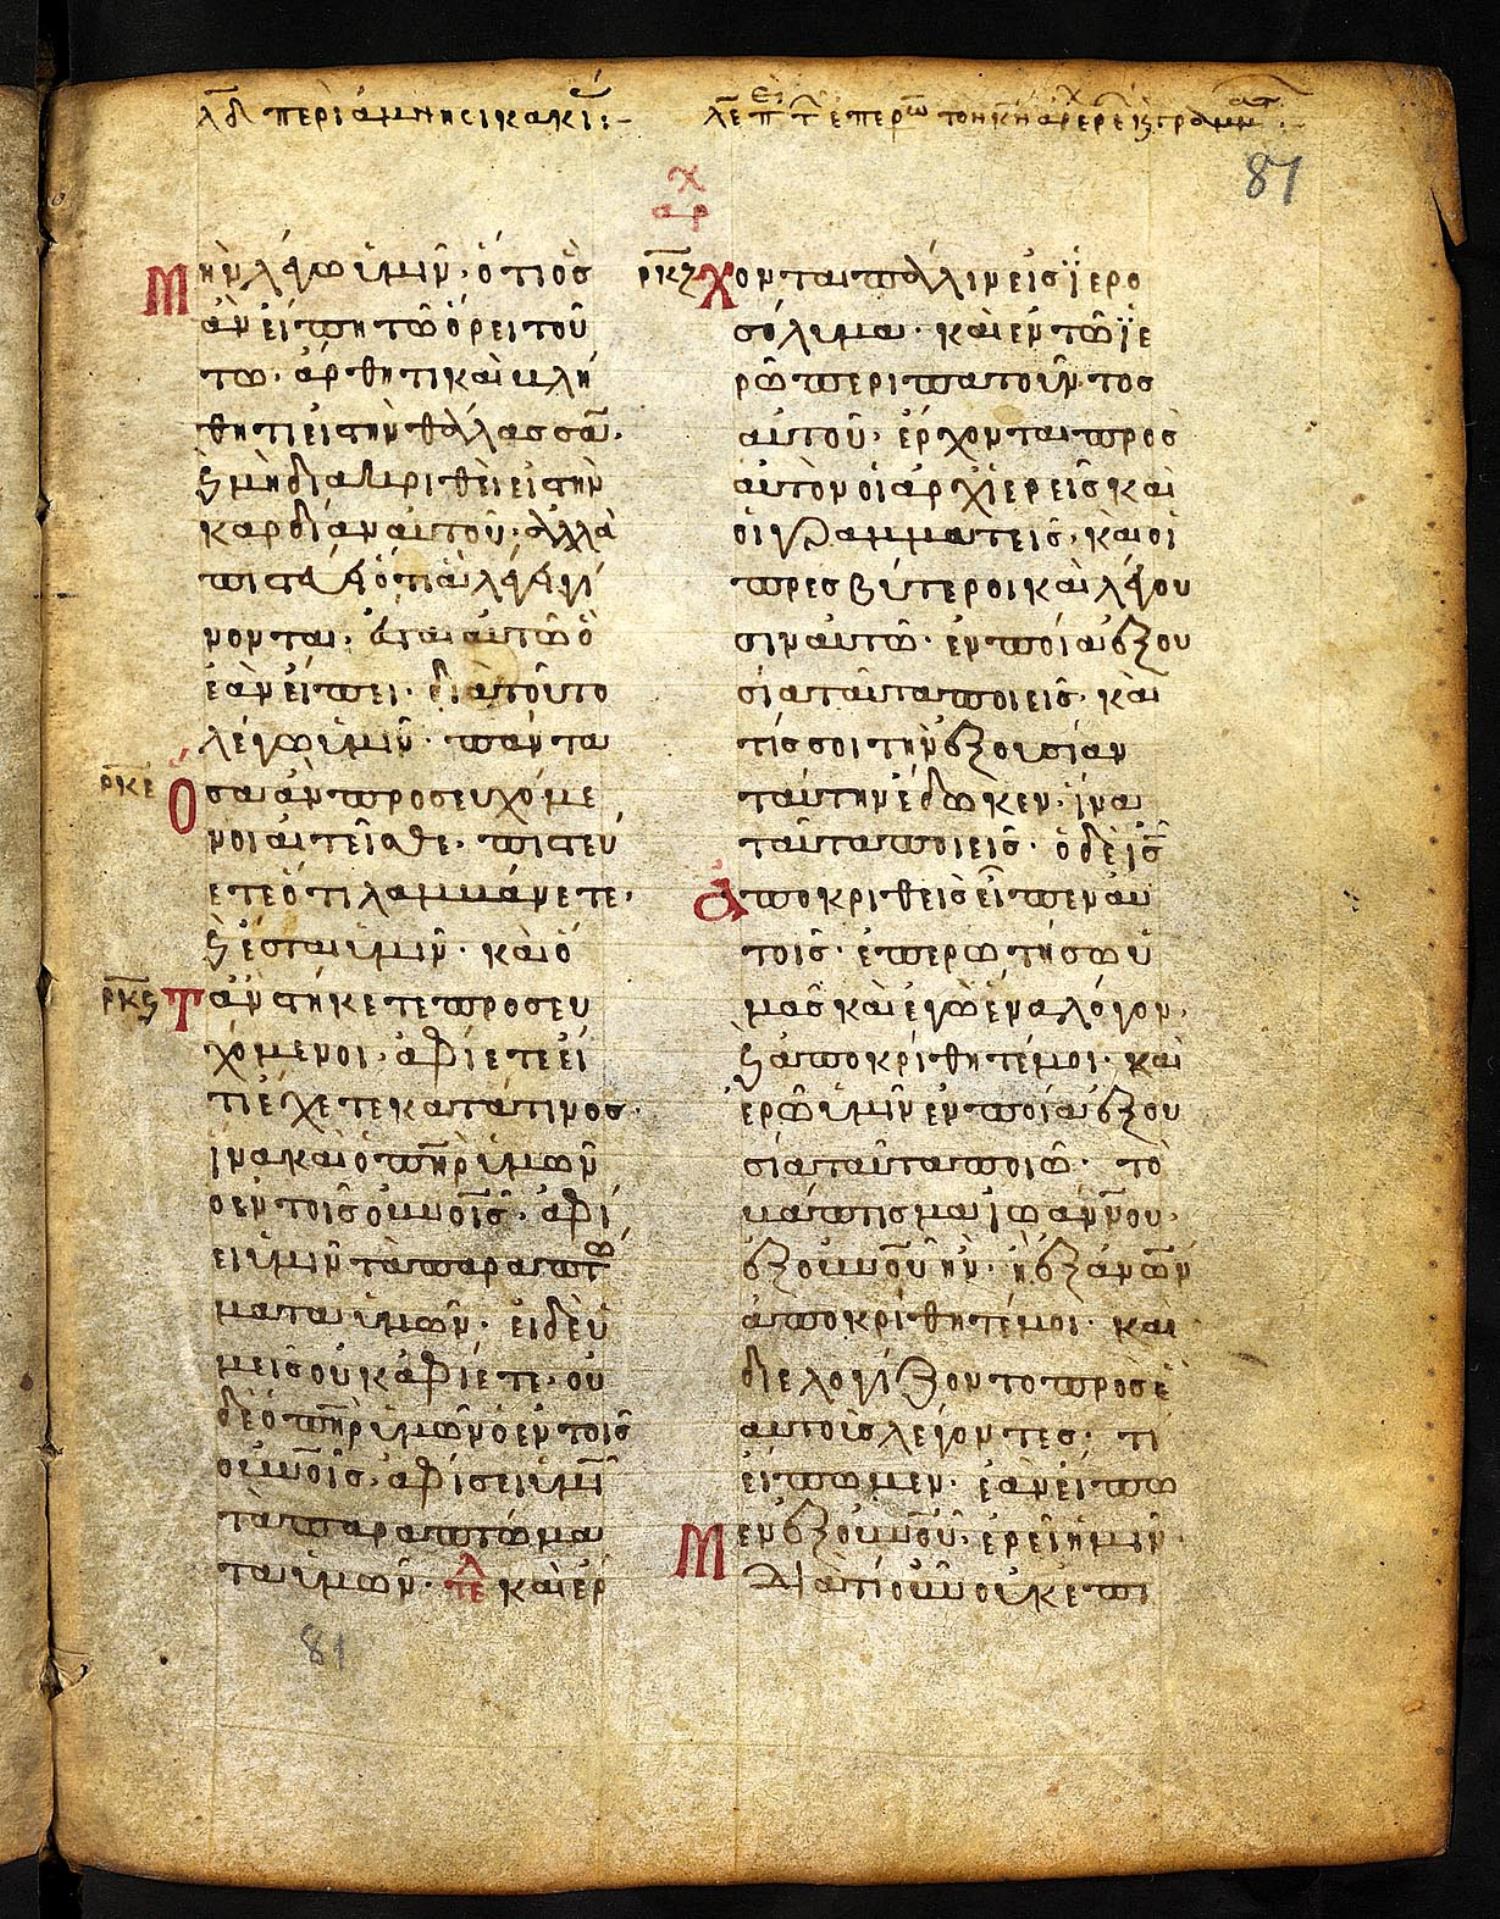 λδ περὶ ἀμνησικακί
87
Μὴν λέγω ὑμῖν· ὅτι ὃς
ἂν εἴπη τῶ ὄρει τού
τω· ἄρθητι καὶ βλή
θητι εἰς τὴν θάλασσα̅·
ϗ μὴ διακριθῆ εἰς τὴν
καρδίαν αὐτοῦ· ἀλλὰ
πιστεύει ὅτι ἃ λέγει γί
νονται· ἔσται αὐτῶ ὃ
ἐὰν εἴπει· διὰ τοῦτο
λέγω ὑμῖν· πάντα
ρκε Ὅσα ἂν προσευχόμε
νοι αἰτεῖσθε· πιστεύ
ετε ὅτι λαμβάνετε·
ϗ ἔσται ὑμῖν· καὶ ὅ
ρκϛ Ταν στήκετε προσευ
χόμενοι· ἀφίετε εἴ
τι ἔχετε κατά τινος·
ἵνα καὶ ὁ π̅η̅ρ̅ ὑμῶν
ὁ ἐν τοῖς οὐνοῖς· ἀφί
ει ὑμῖν τὰ παραπτώ
ματα ὑμῶν· εἰ δὲ ὑ
μεῖς οὐκ ἀφίετε· οὐ
δὲ ὁ π̅η̅ρ̅ ὑμῶν ὁ ἐν τοῖς
οὐνοῖς· ἀφίσει ὑμῖ̅
τὰ παραπτώμα
τα ὑμῶν· τελ καὶ ἔρ
81
αρχ
ρκζ Χονται πάλιν εἰς ϊερο
σόλυμα· καὶ ἐν τῶ ϊε
ρῶ περιπατοῦντος
αὐτοῦ· ἔρχονται πρὸς
αὐτὸν οἱ ἀρχιερεῖς καὶ
οἱ γραμματεῖς· καὶ οἱ
πρεσβύτεροι καὶ λέγου
σιν αὐτῶ· ἐν ποία ἐξου
σία ταῦτα ποιεῖς· καὶ
τίς σοι τὴν ἐξουσίαν
ταύτην ἔδωκεν· ἵνα
ταῦτα ποιεῖς· ὁ δὲ ι̅ς̅
Ἀποκριθεὶς εἶπεν αὐ
τοῖς· ἐπερωτήσω ὑ
μᾶς καὶ ἐγὼ ἕνα λόγον·
ϗ ἀποκρίθητέ μοι· καὶ
ἐρῶ ὑμῖν ἐν ποία ἐξου
σία ταῦτα ποιῶ· τὸ
βάπτισμα ἰωάννου·
ἐξ οὐνοῦ ἦν· ἢ ἐξ ἀνων
ἀποκρίθητέ μοι· καὶ
διελογίζοντο πρὸς ἑ
αυτοὺς λέγοντες· τί
εἴπωμεν· ἐὰν εἴπω
Μεν ἐξ οὐνοῦ· ἐρεῖ ἡμῖν·
Διὰ τί οὖν οὐκ ἐπι